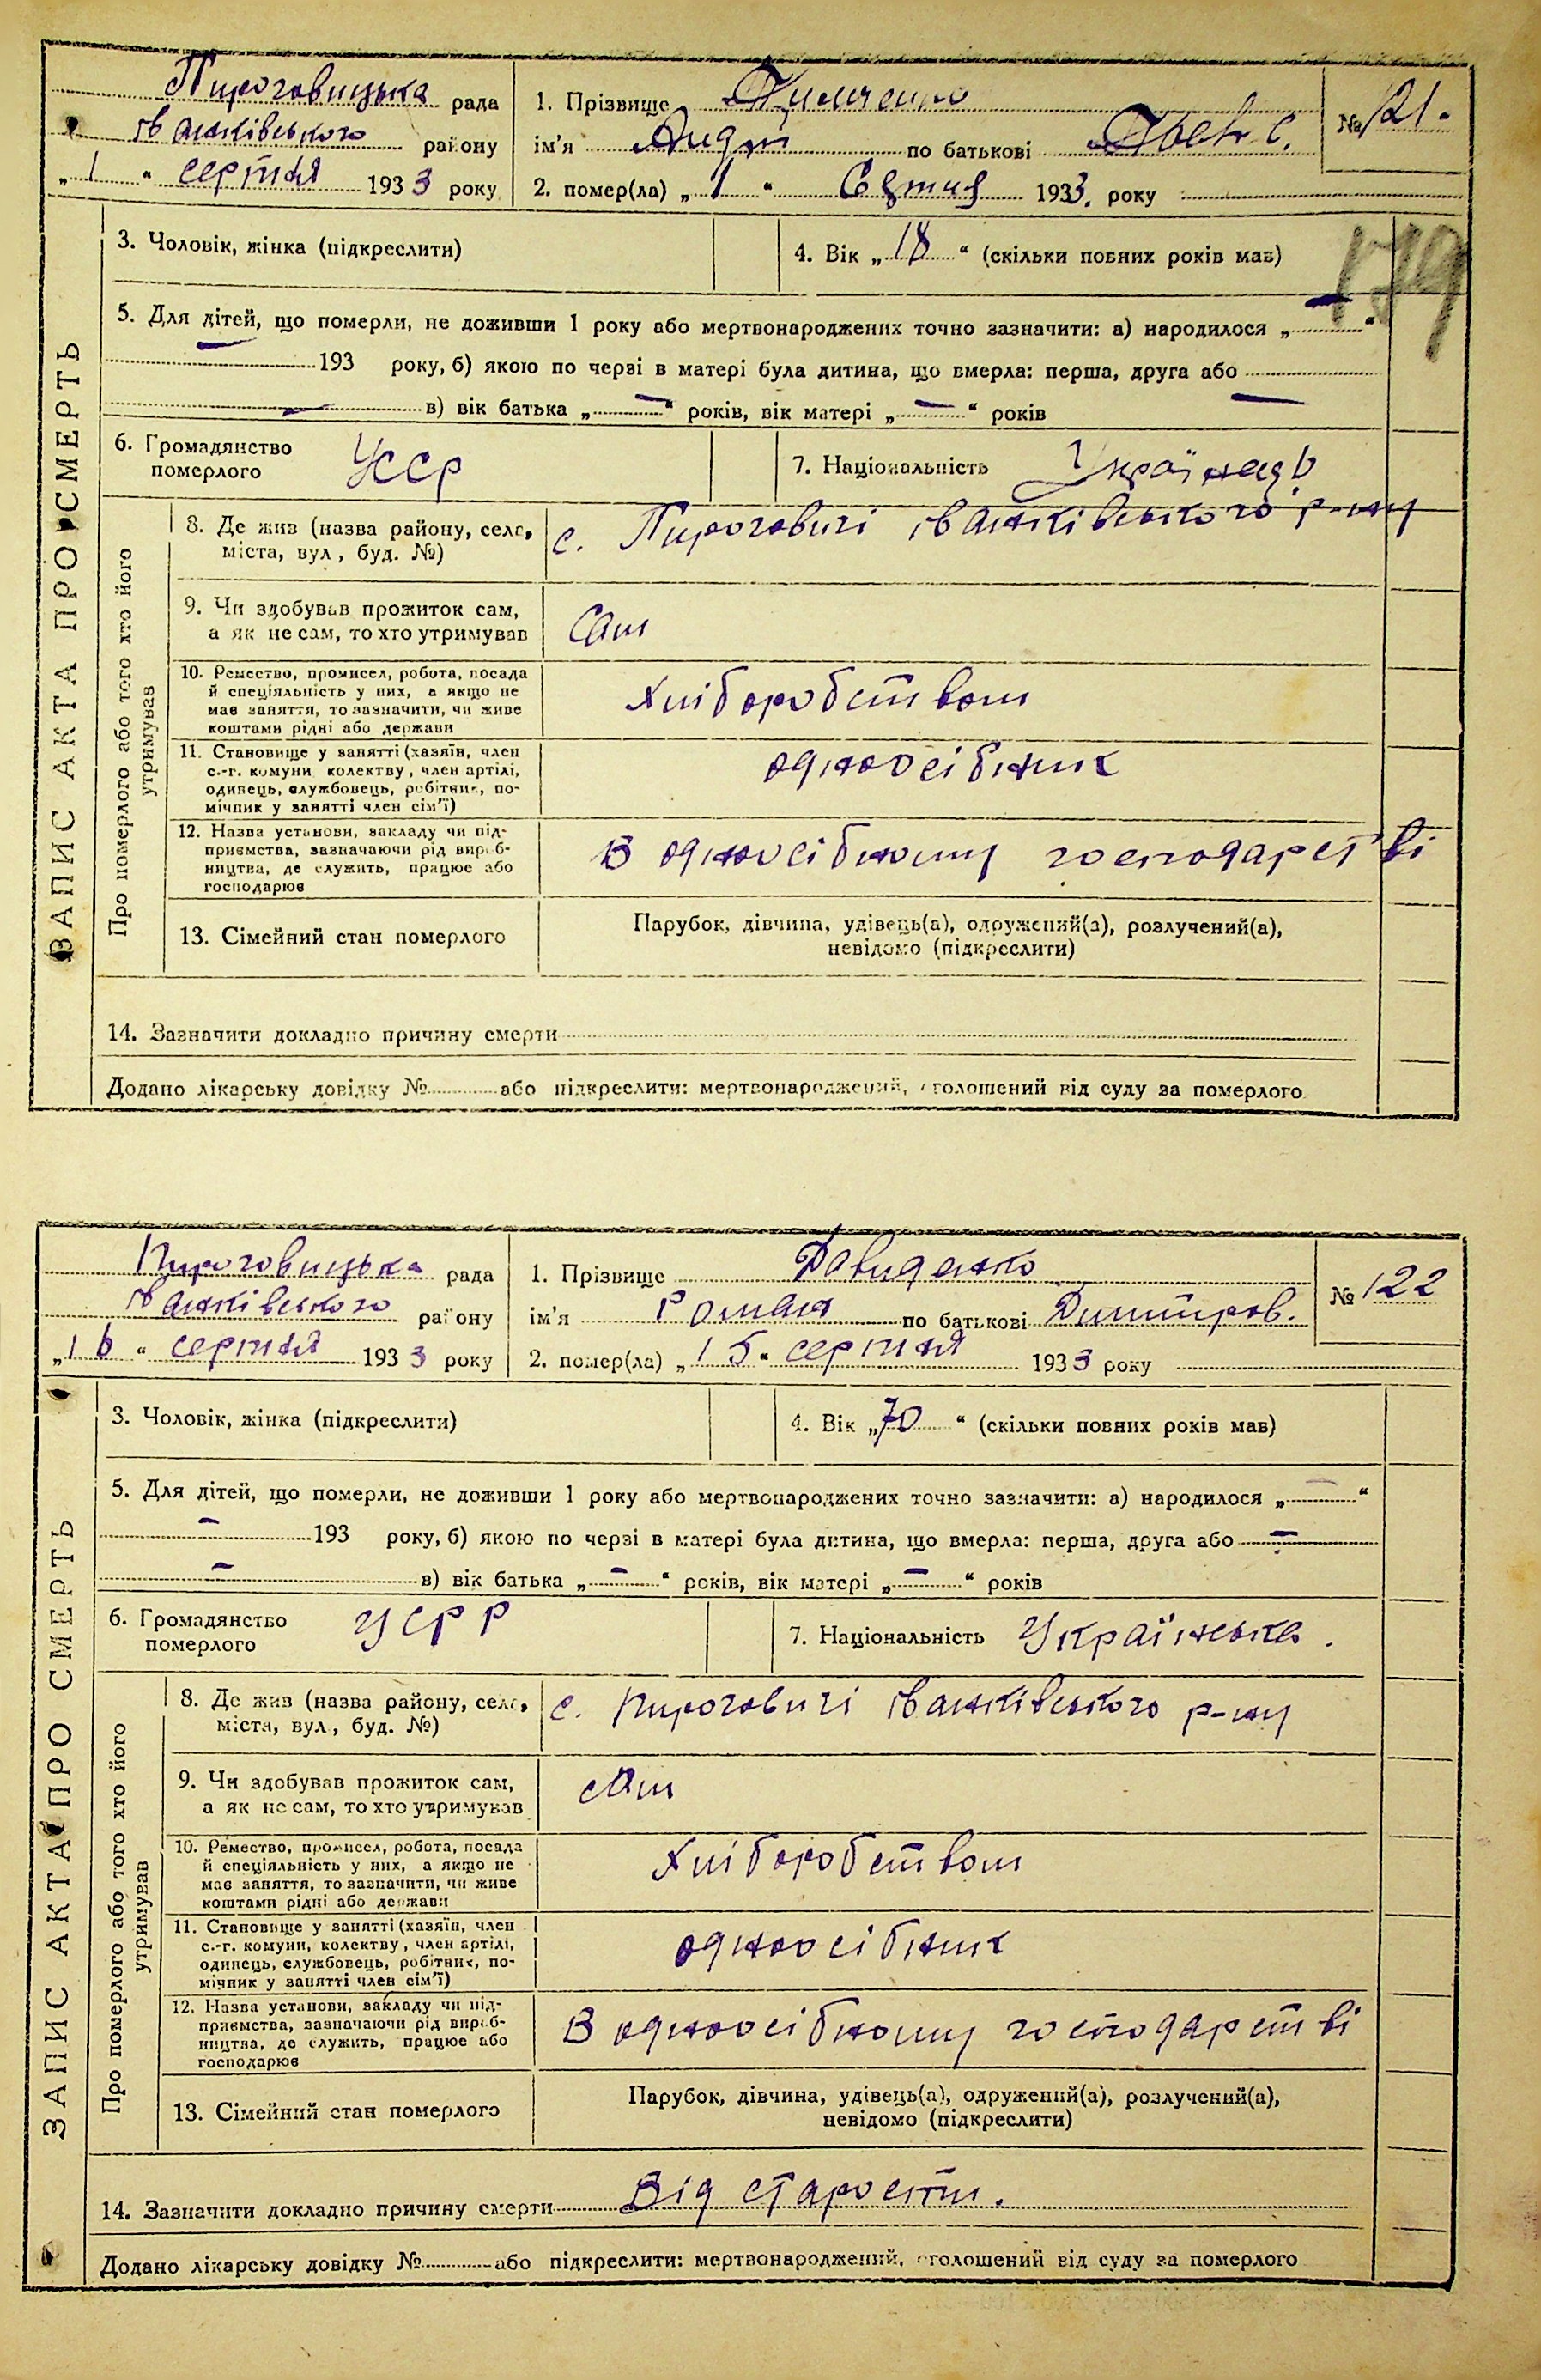 Пироговицька рада
Іванківського району
„ 1 “ серпня 1933 року
1. Прізвище
ім'я по батькові
2. помер(ла) „ 1 “ 1933. року
№ 121.
179
ЗАПИС АКТА ПРО СМЕРТЬ
3. Чоловік, жінка (підкреслити)
4. Вік „ 18 “ (скільки повних років мав)
5. Для дітей, що померли, не доживши 1 року або мертвонароджених точно зазначити: а) народилося „ — “
— 193 року, б) якою по черзі в матері була дитина, що вмерла: перша, друга або —
— в) вік батька „ — “ років, вік матері „ — “ років
6. Громадянство
померлого
УССР
7. Національність
Про померлого або того хто його
утримував
8. Де жив (назва району, села,
міста, вул, буд. №)
с. Пироговичі Іванківського р-ну
9. Чи здобував прожиток сам,
а як не сам, то хто утримував
Сам
10. Ремество, промисел, робота, посада
й спеціяльність у них, а якщо не
має заняття, то зазначити, чи живе
коштами рідні або держави
Хліборобством
11. Становище у занятті (хазяїн, член
с.-г. комуни колектву, член артілі,
одинець, службовець, робітник, по-
мічник у занятті член сім'ї)
одноосібник
12. Назва установи, закладу чи під-
приємства, зазначаючи рід вироб-
ництва, де служить, працює або
господарює
В одноосібному господарстві
13. Сімейний стан померлого
Парубок, дівчина, удівець(а), одружений(а), розлучений(а),
невідомо (підкреслити)
14. Зазначити докладно причину смерти
Додано лікарську довідку № або підкреслити: мертвонароджений, оголошений від суду за померлого
Пироговицька рада
Іванківського району
„ 16 “ серпня 1933 року
1. Прізвище Давиденко
ім'я Роман по батькові Димитров.
2. помер(ла) „ 15 “ серпня 1933 року
№ 122
ЗАПИС АКТА ПРО СМЕРТЬ
3. Чоловік, жінка (підкреслити)
4. Вік „ 70 “ (скільки повних років мав)
5. Для дітей, що померли, не доживши 1 року або мертвонароджених точно зазначити: а) народилося „ — “
— 193 року, б) якою по черзі в матері була дитина, що вмерла: перша, друга або —
— в) вік батька „ — “ років, вік матері „ — “ років
6. Громадянство
померлого
УСРР
7. Національність Українська.
Про померлого або того хто його
утримував
8. Де жив (назва району, села,
міста, вул, буд. №)
с. Пироговичі Іванківського р-ну
9. Чи здобував прожиток сам,
а як не сам, то хто утримував
сам
10. Ремество, промисел, робота, посада
й спеціяльність у них, а якщо не
має заняття, то зазначити, чи живе
коштами рідні або держави
Хліборобством
11. Становище у занятті (хазяїн, член
с.-г. комуни, колектву, член артілі,
одинець, службовець, робітник, по-
мічник у занятті член сім'ї)
одноосібник
12. Назва установи, закладу чи під-
приємства, зазначаючи рід вироб-
ництва, де служить, працює або
господарює
В одноосібному господарстві
13. Сімейний стан померлого
Парубок, дівчина, удівець(а), одружений(а), розлучений(а),
невідомо (підкреслити)
14. Зазначити докладно причину смерти Від старости.
Додано лікарську довідку № або підкреслити: мертвонароджений, оголошений від суду за померлого